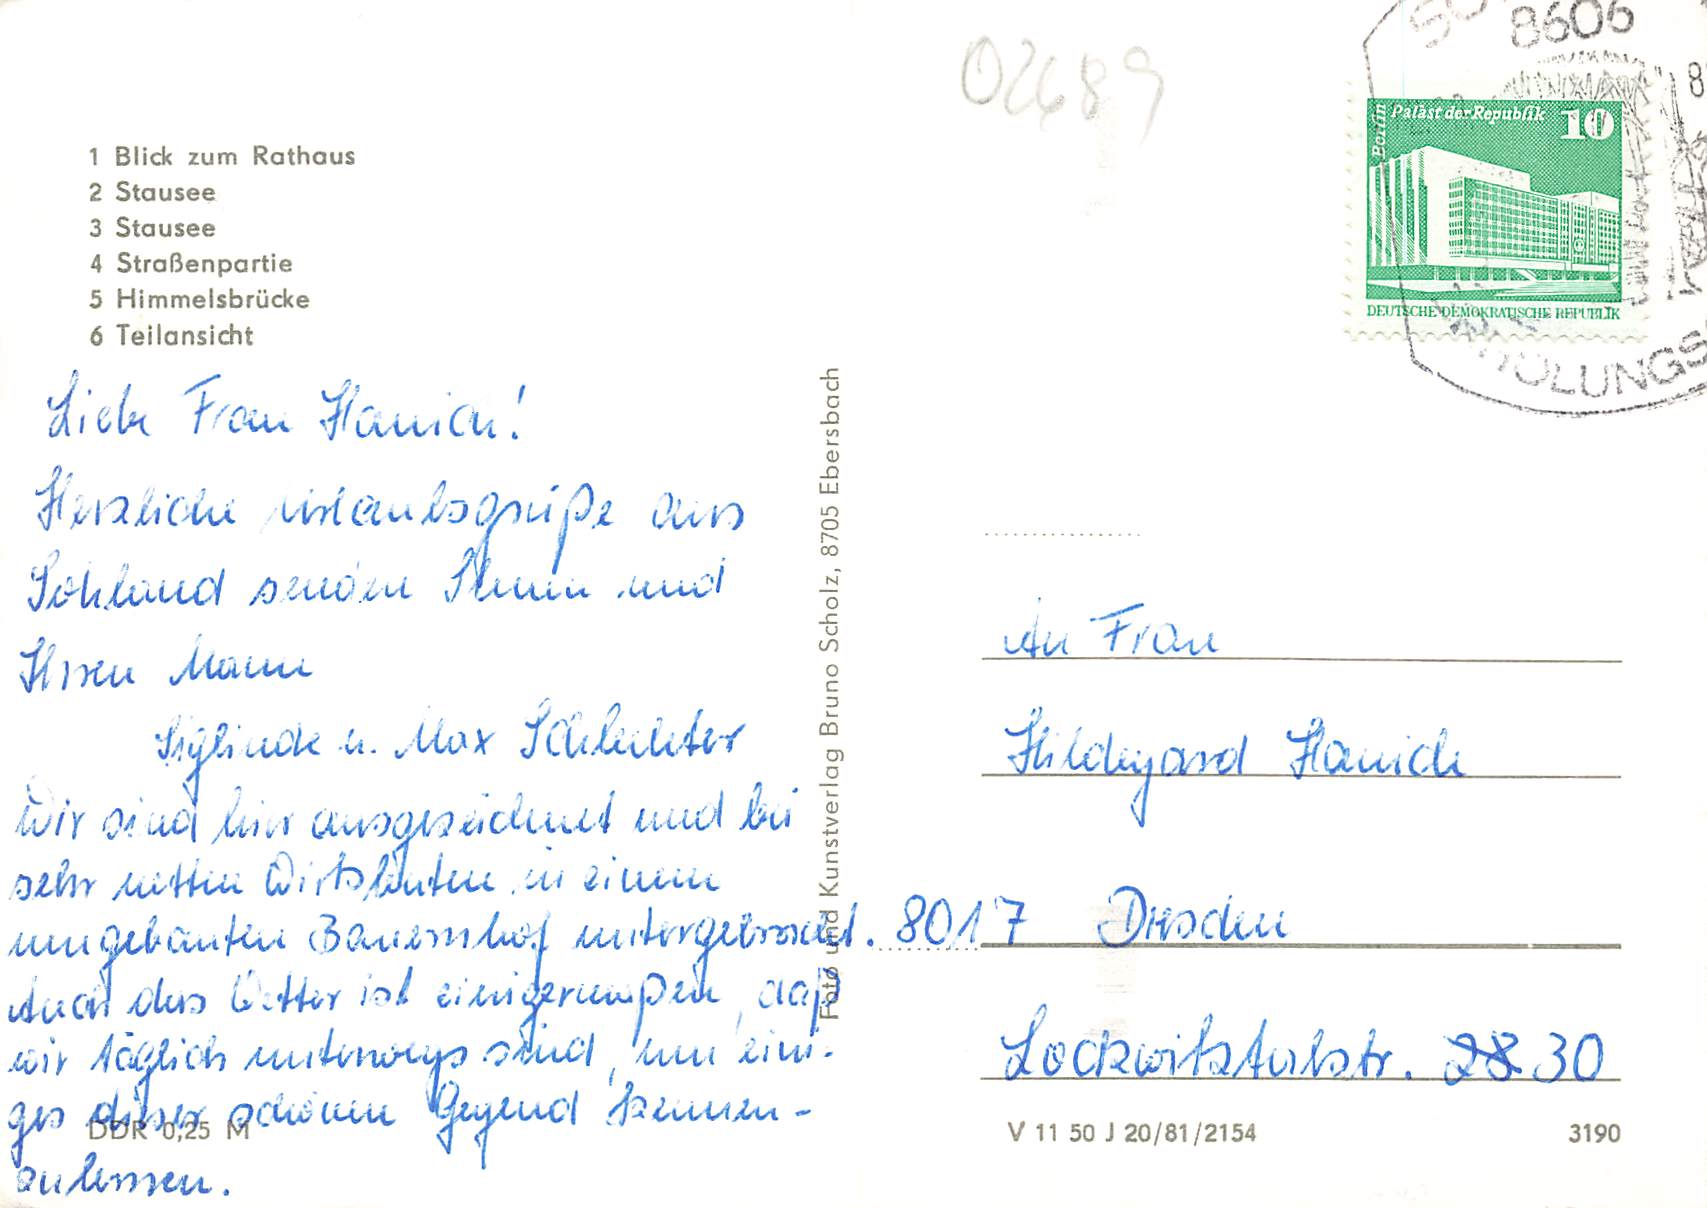 02689
8606
8
Berlin
Palast der Republik
10
DEUTSCHE DEMOKRATISCHE REPUBLIK
HOLUNGS
1 Blick zum Rathaus
2 Stausee
3 Stausee
4 Straßenpartie
5 Himmelsbrücke
6 Teilansicht
Liebe Frau Hanich!
Herzliche Urlaubsgrüße aus
Sohland senden Ihnen und
Ihren Mann
Siglinde u. Max Schlechter
Wir sind hier ausgezeichnet und bei
sehr netten Wirtsleuten in einem
umgebauten Bauernhof untergebracht.
Auch das Wetter ist einigermaßen, daß
wir täglich unterwegs sind, um eini-
ges dieser schönen Gegend kennen-
zulernen.
DDR 0,25 M
Foto und Kunstverlag Bruno Scholz, 8705 Ebersbach
An Frau
Hildegard Hanich
8017 Dresden
Lockwitztalstr. 28 30
V 11 50 J 20/81/2154
3190